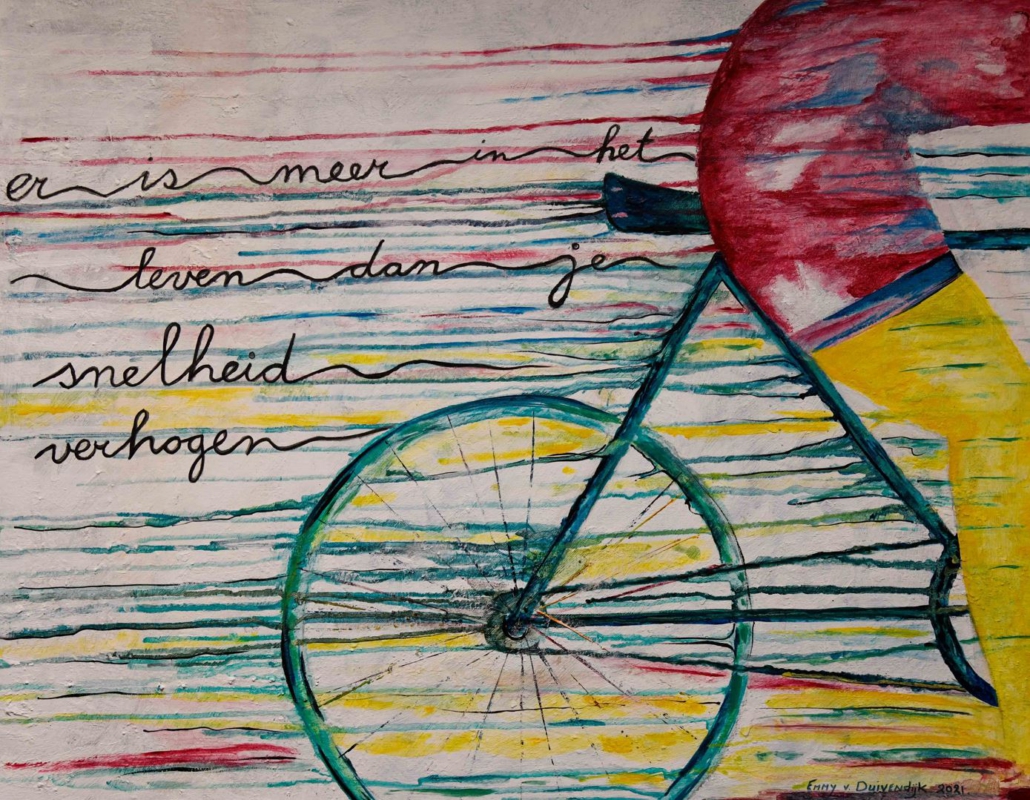 er is meer in het
leven dan je
snelheid
verhogen
Emmy v Duivendijk 2021